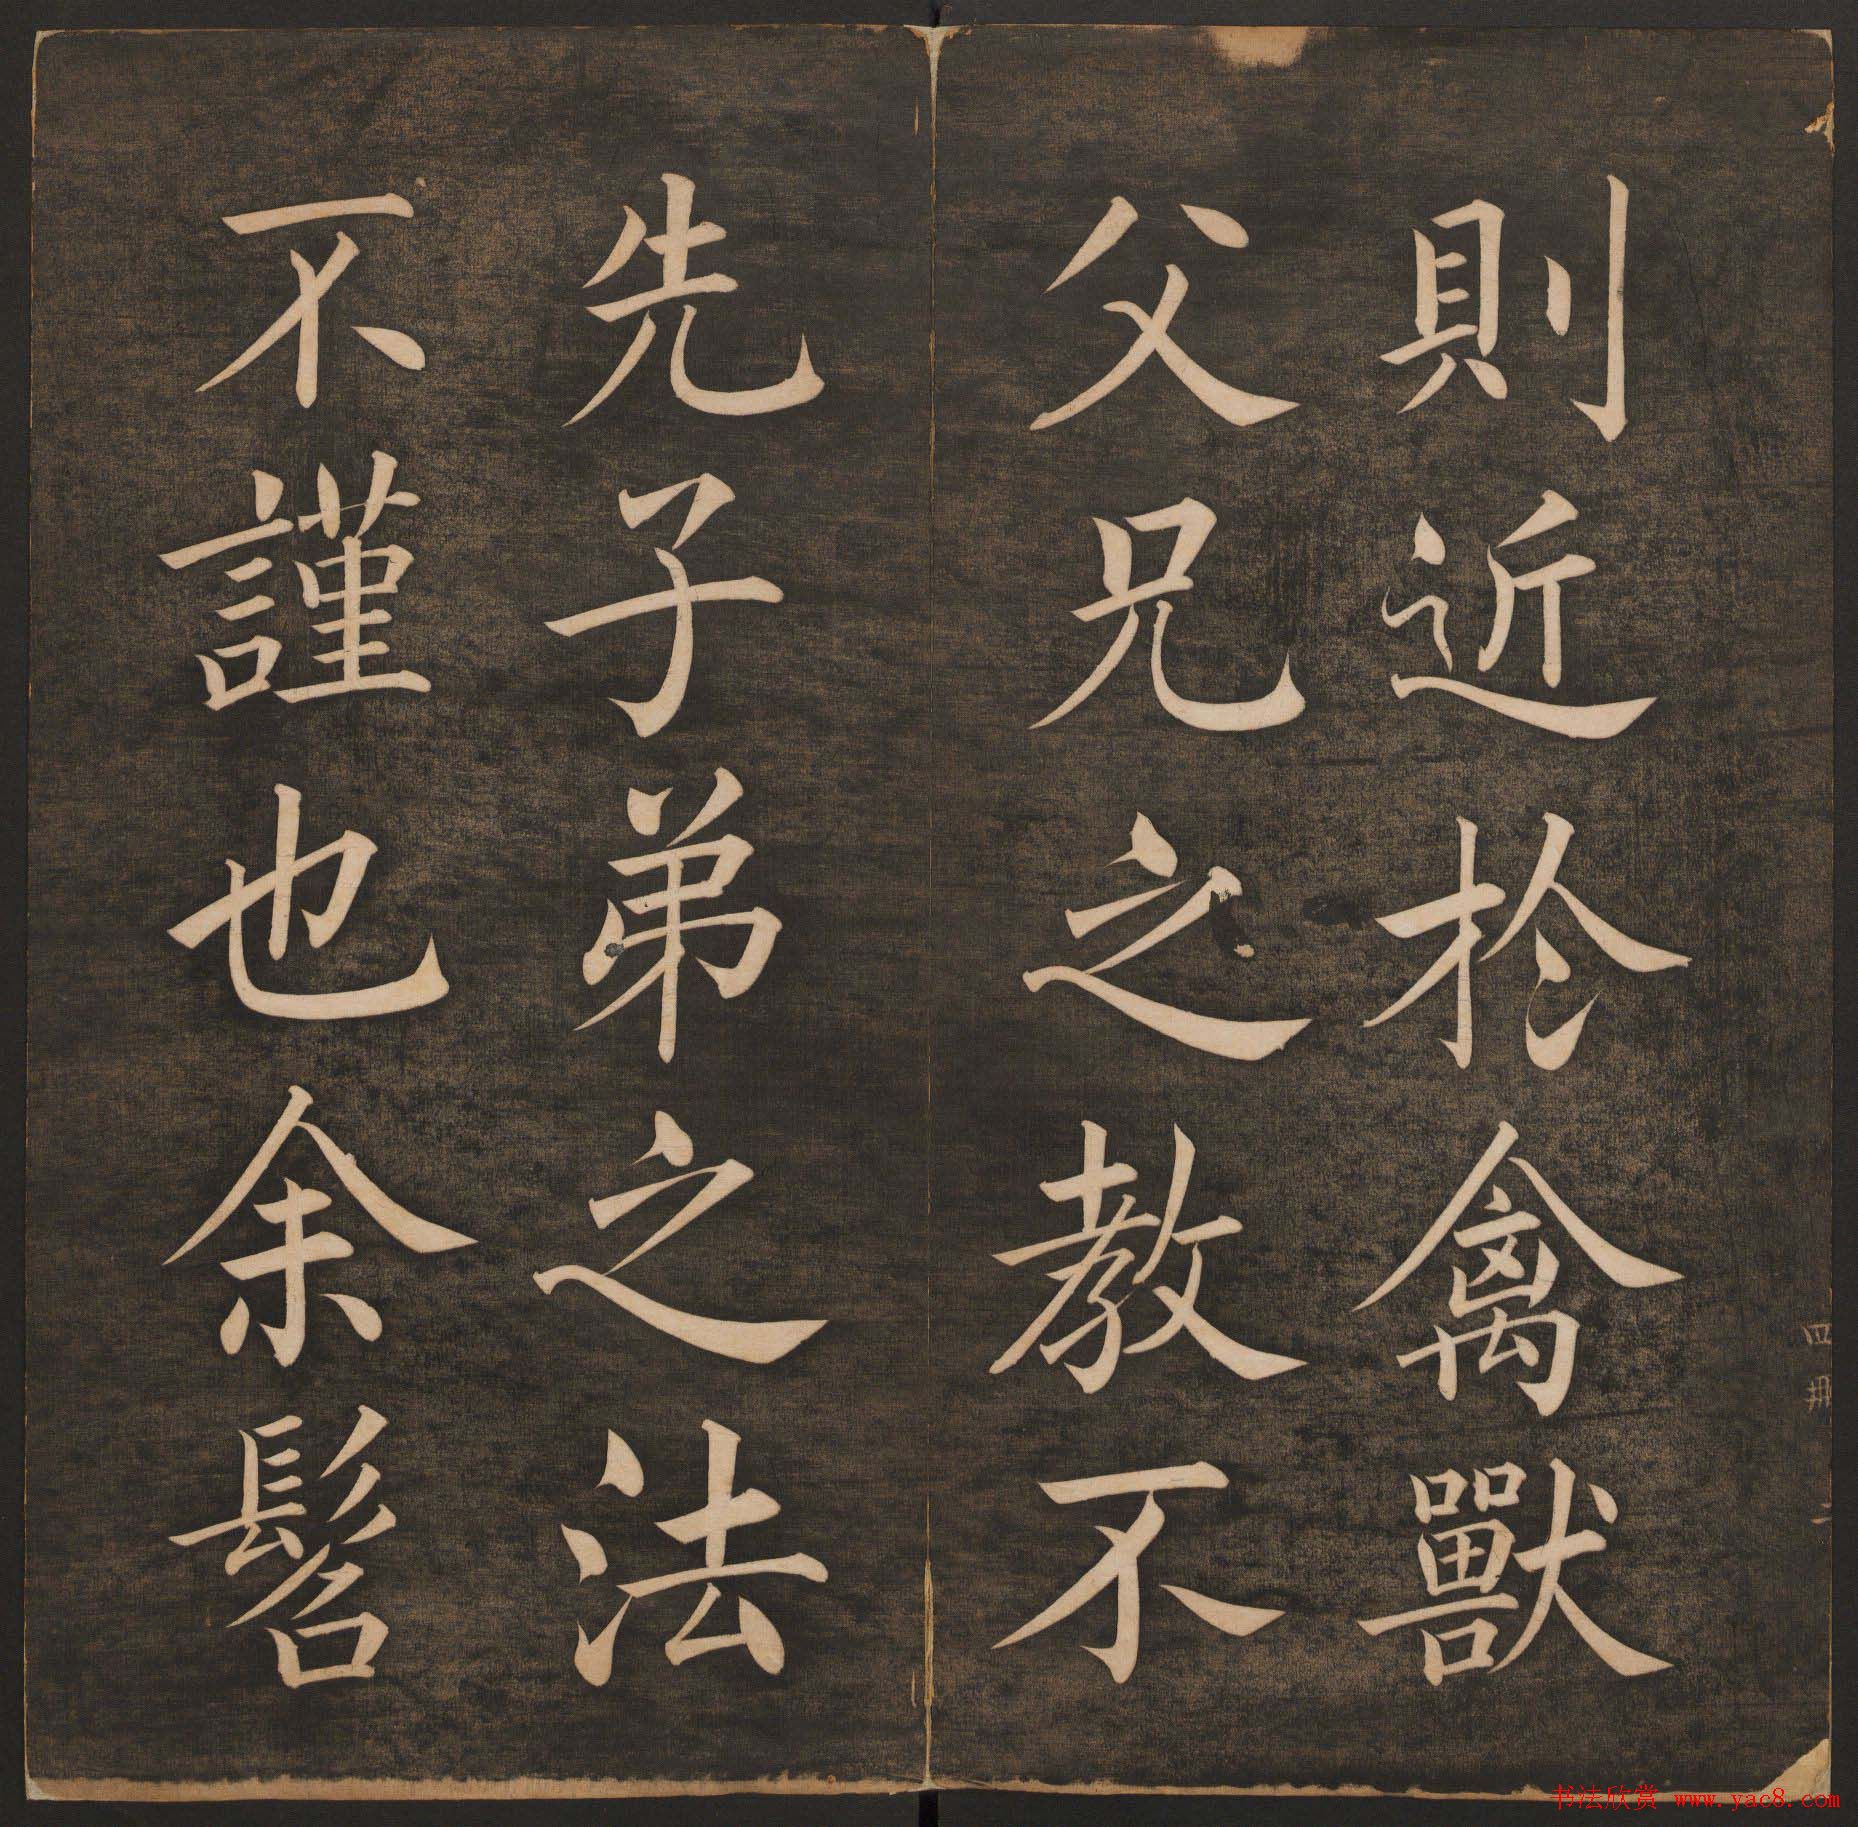 則近於禽獸
父兄之教不
先子弟之法
不謹也余髫
四冊 二
书法欣赏 www.yac8.com